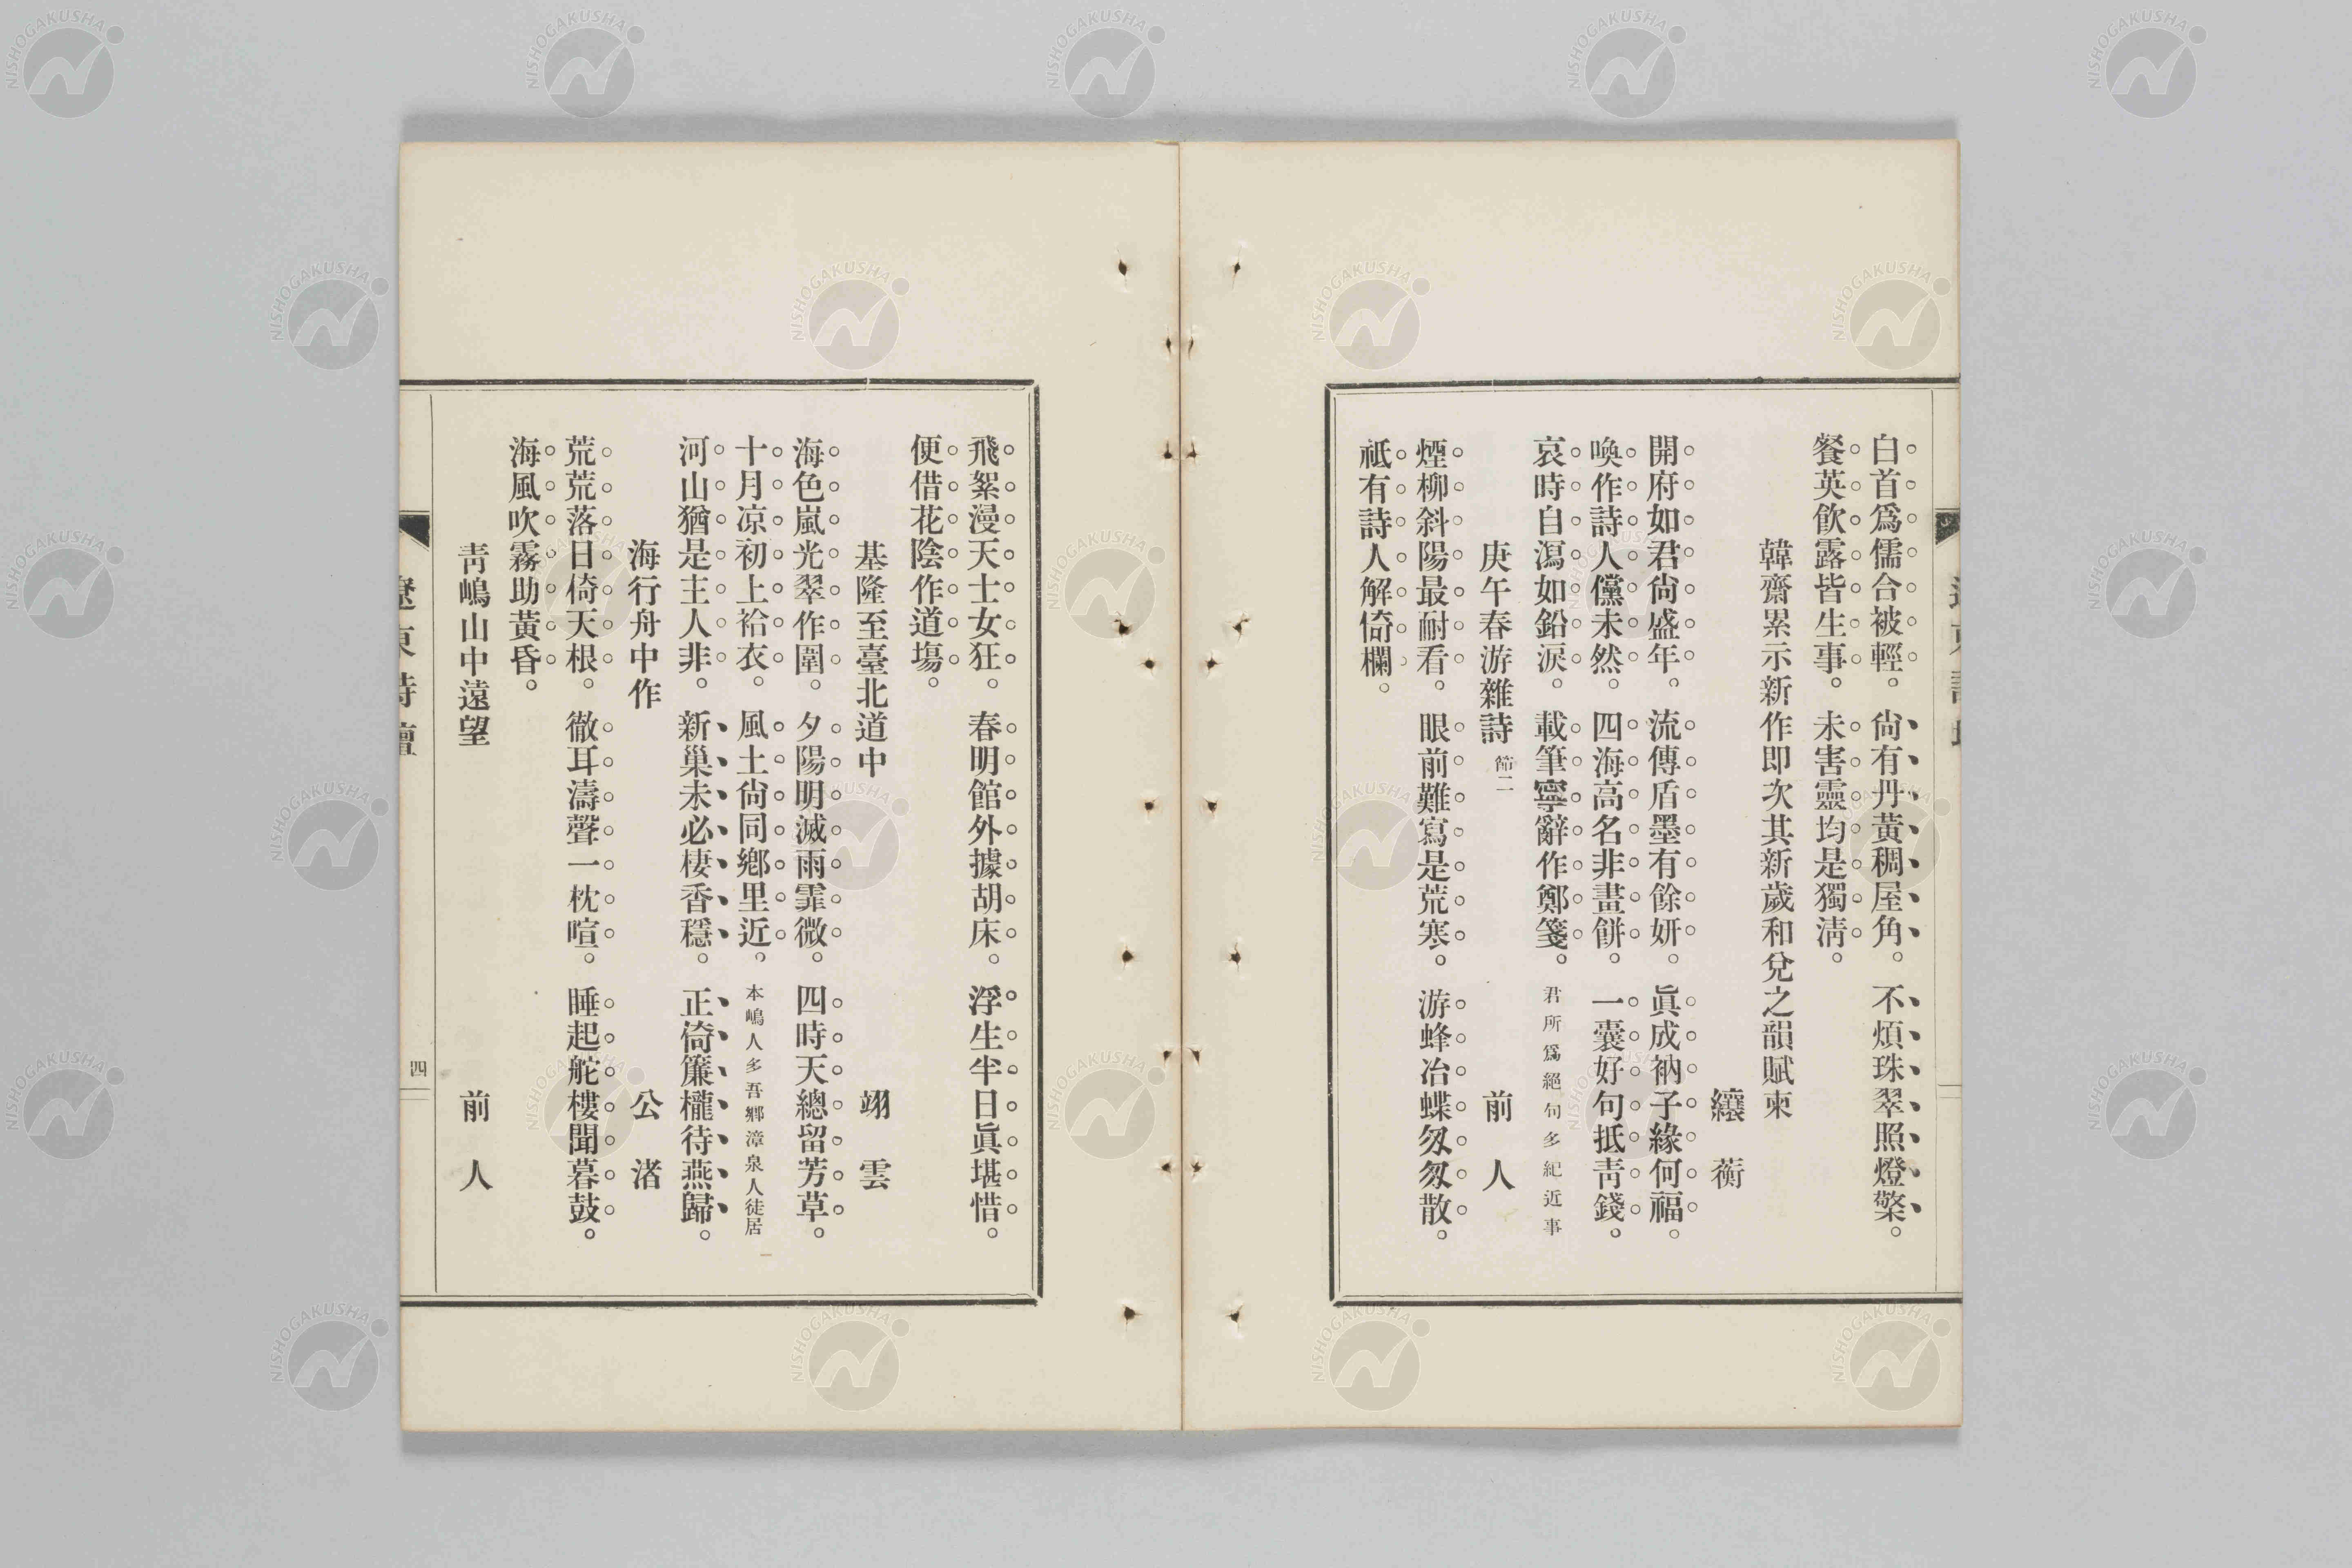 白首爲儒合被輕。尙有丹黃稠屋角。不煩珠翠照燈檠。
餐英飮露皆生事。未害靈均是獨淸。
韓齋累示新作卽次其新歲和兌之韻賦柬
纕蘅
開府如君尙盛年。流傳盾墨有餘妍。眞成衲子緣何福。
喚作詩人儻未然。四海高名非畫餠。一囊好句抵靑錢。
哀時自瀉如鉛淚。載筆寧辭作鄭箋。君所爲絕句多紀近事
庚午春游雜詩 節二 前人
煙柳斜陽最耐看。眼前難寫是荒寒。游蜂冶蝶匆匆散。
祗有詩人解倚欄。
飛絮漫天士女狂。春明館外據胡床。浮生半日眞堪惜。
便借花陰作道塲。
基隆至臺北道中 翊雲
海色嵐光翠作圍。夕陽明滅雨霏微。四時天總留芳草。
十月凉初上袷衣。風土尙同鄕里近。本嶋人多吾鄕漳泉人徒居
河山猶是主人非。新巢未必棲香穩。正倚簾櫳待燕歸。
海行舟中作 公渚
荒荒落日倚天根。徹耳濤聲一枕喧。睡起舵樓聞暮鼓。
海風吹霧助黃昏。
靑嶋山中遠望 前人
遼東詩壇
四
NISHOGAKUSHA